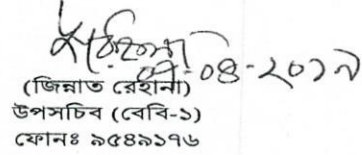 ০৫-০৪-২০১৭
(জিন্নাত রেহানা)
উপসচিব (বেবি-১)
ফোনঃ ৯৫৪৯১৭৬